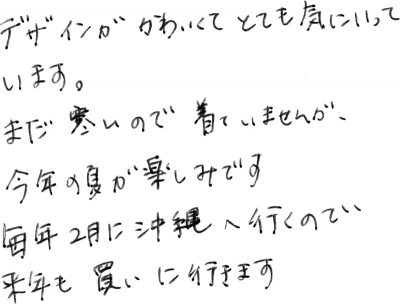 デザインが かわいくて とても気にいって
います。
まだ 寒いので 着ていませんが、
今年の夏が楽しみです
毎年2月に沖縄へ行くので
来年も 買いに行きます